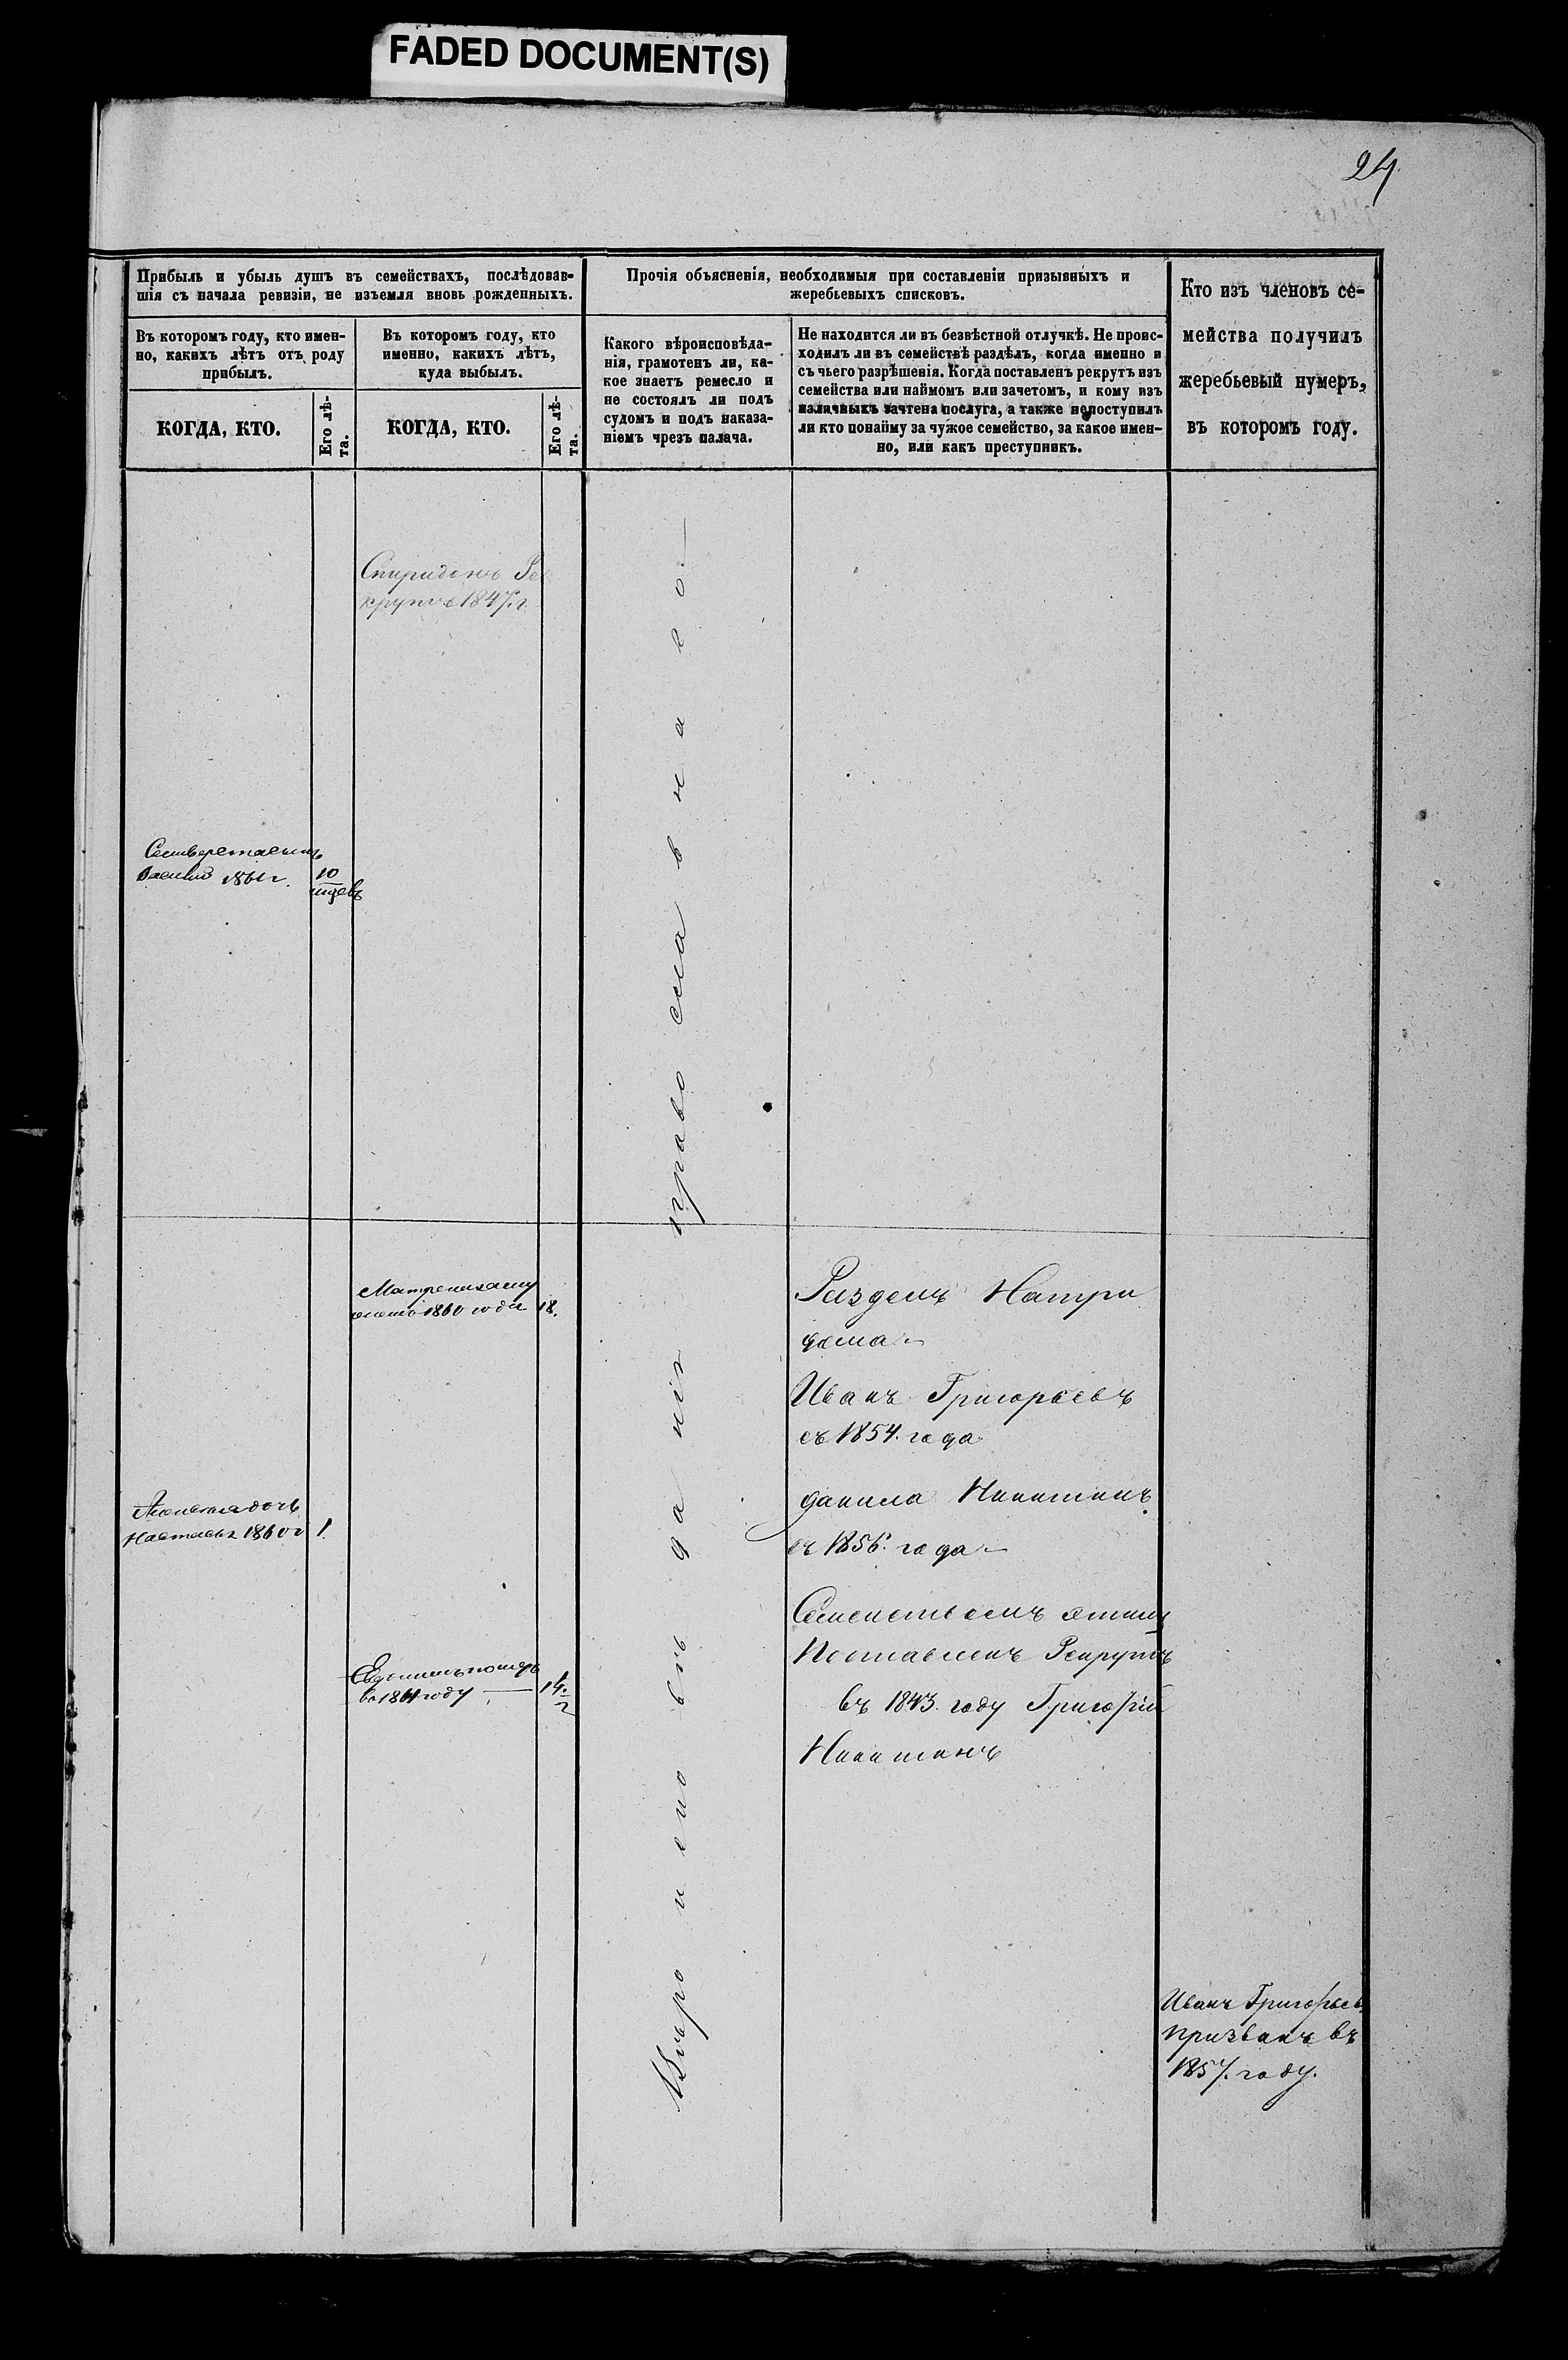 FADED DOCUMENT(S)
24
Прибыль и убыль душъ въ семействахъ, послѣдовав-
шія съ начала ревизіи, не изъемля вновь рожденныхъ.
Въ которомъ году, кто имен-
но, какихъ лѣтъ отъ роду
прибылъ.
Въ которомъ году, кто
именно, какихъ лѣтъ,
куда выбылъ.
КОГДА, КТО.
Его лѣ-
та.
КОГДА, КТО.
Его лѣ-
та.
Прочія объясненія, необходимыя при составленіи призывныхъ и
жеребьевыхъ списковъ.
Какого вѣроисповѣда-
нія, грамотенъ ли, ка-
кое знаетъ ремесло и
не состоялъ ли подъ
судомъ и подъ наказа-
ніемъ чрезъ палача.
Не находится ли въ безвѣстной отлучкѣ. Не проис-
ходилъ ли въ семействѣ раздѣлъ, когда именно и
съ чьего разрѣшенія. Когда поставленъ рекрутъ изъ
семейства или наймомъ или зачетомъ, и кому изъ
наличныхъ зачтена послуга, а также непоступилъ
ли кто понайму за чужое семейство, за какое имен-
но, или какъ преступникъ.
Кто изъ членовъ се-
мейства получилъ
жеребьевый нумеръ,
въ которомъ году.
Спиридонъ Ре
крутъ 1847. г
Василий 1861 г.
10
Вѣро исповѣданія православнаго
1860 года 18.
Разделъ На три
дома
Иванъ Григорьевъ
съ 1854. года
данила Никитинъ
съ 1856. года
Семействомъ етимъ
Поставленъ Рекрутъ
въ 1843. году Григорій
Никитинъ
1860 г 1.
в 1861 году 14.
Иванъ Григорьев
призванъ въ
1857. году.